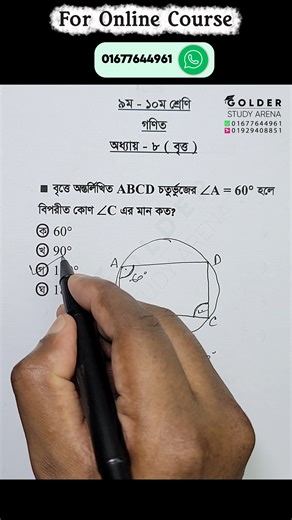 For Online Course
01677644961
GOLDER
STUDY ARENA
01677644961
01929408851
৯ম - ১০ম শ্রেণি
গণিত
অধ্যায় - ৮ ( বৃত্ত )
■ বৃত্তে অন্তর্লিখিত ABCD চতুর্ভুজের ∠A = 60° হলে
বিপরীত কোণ ∠C এর মান কত?
ক 60°
খ 90°
গ
ঘ
A
D
60°
C